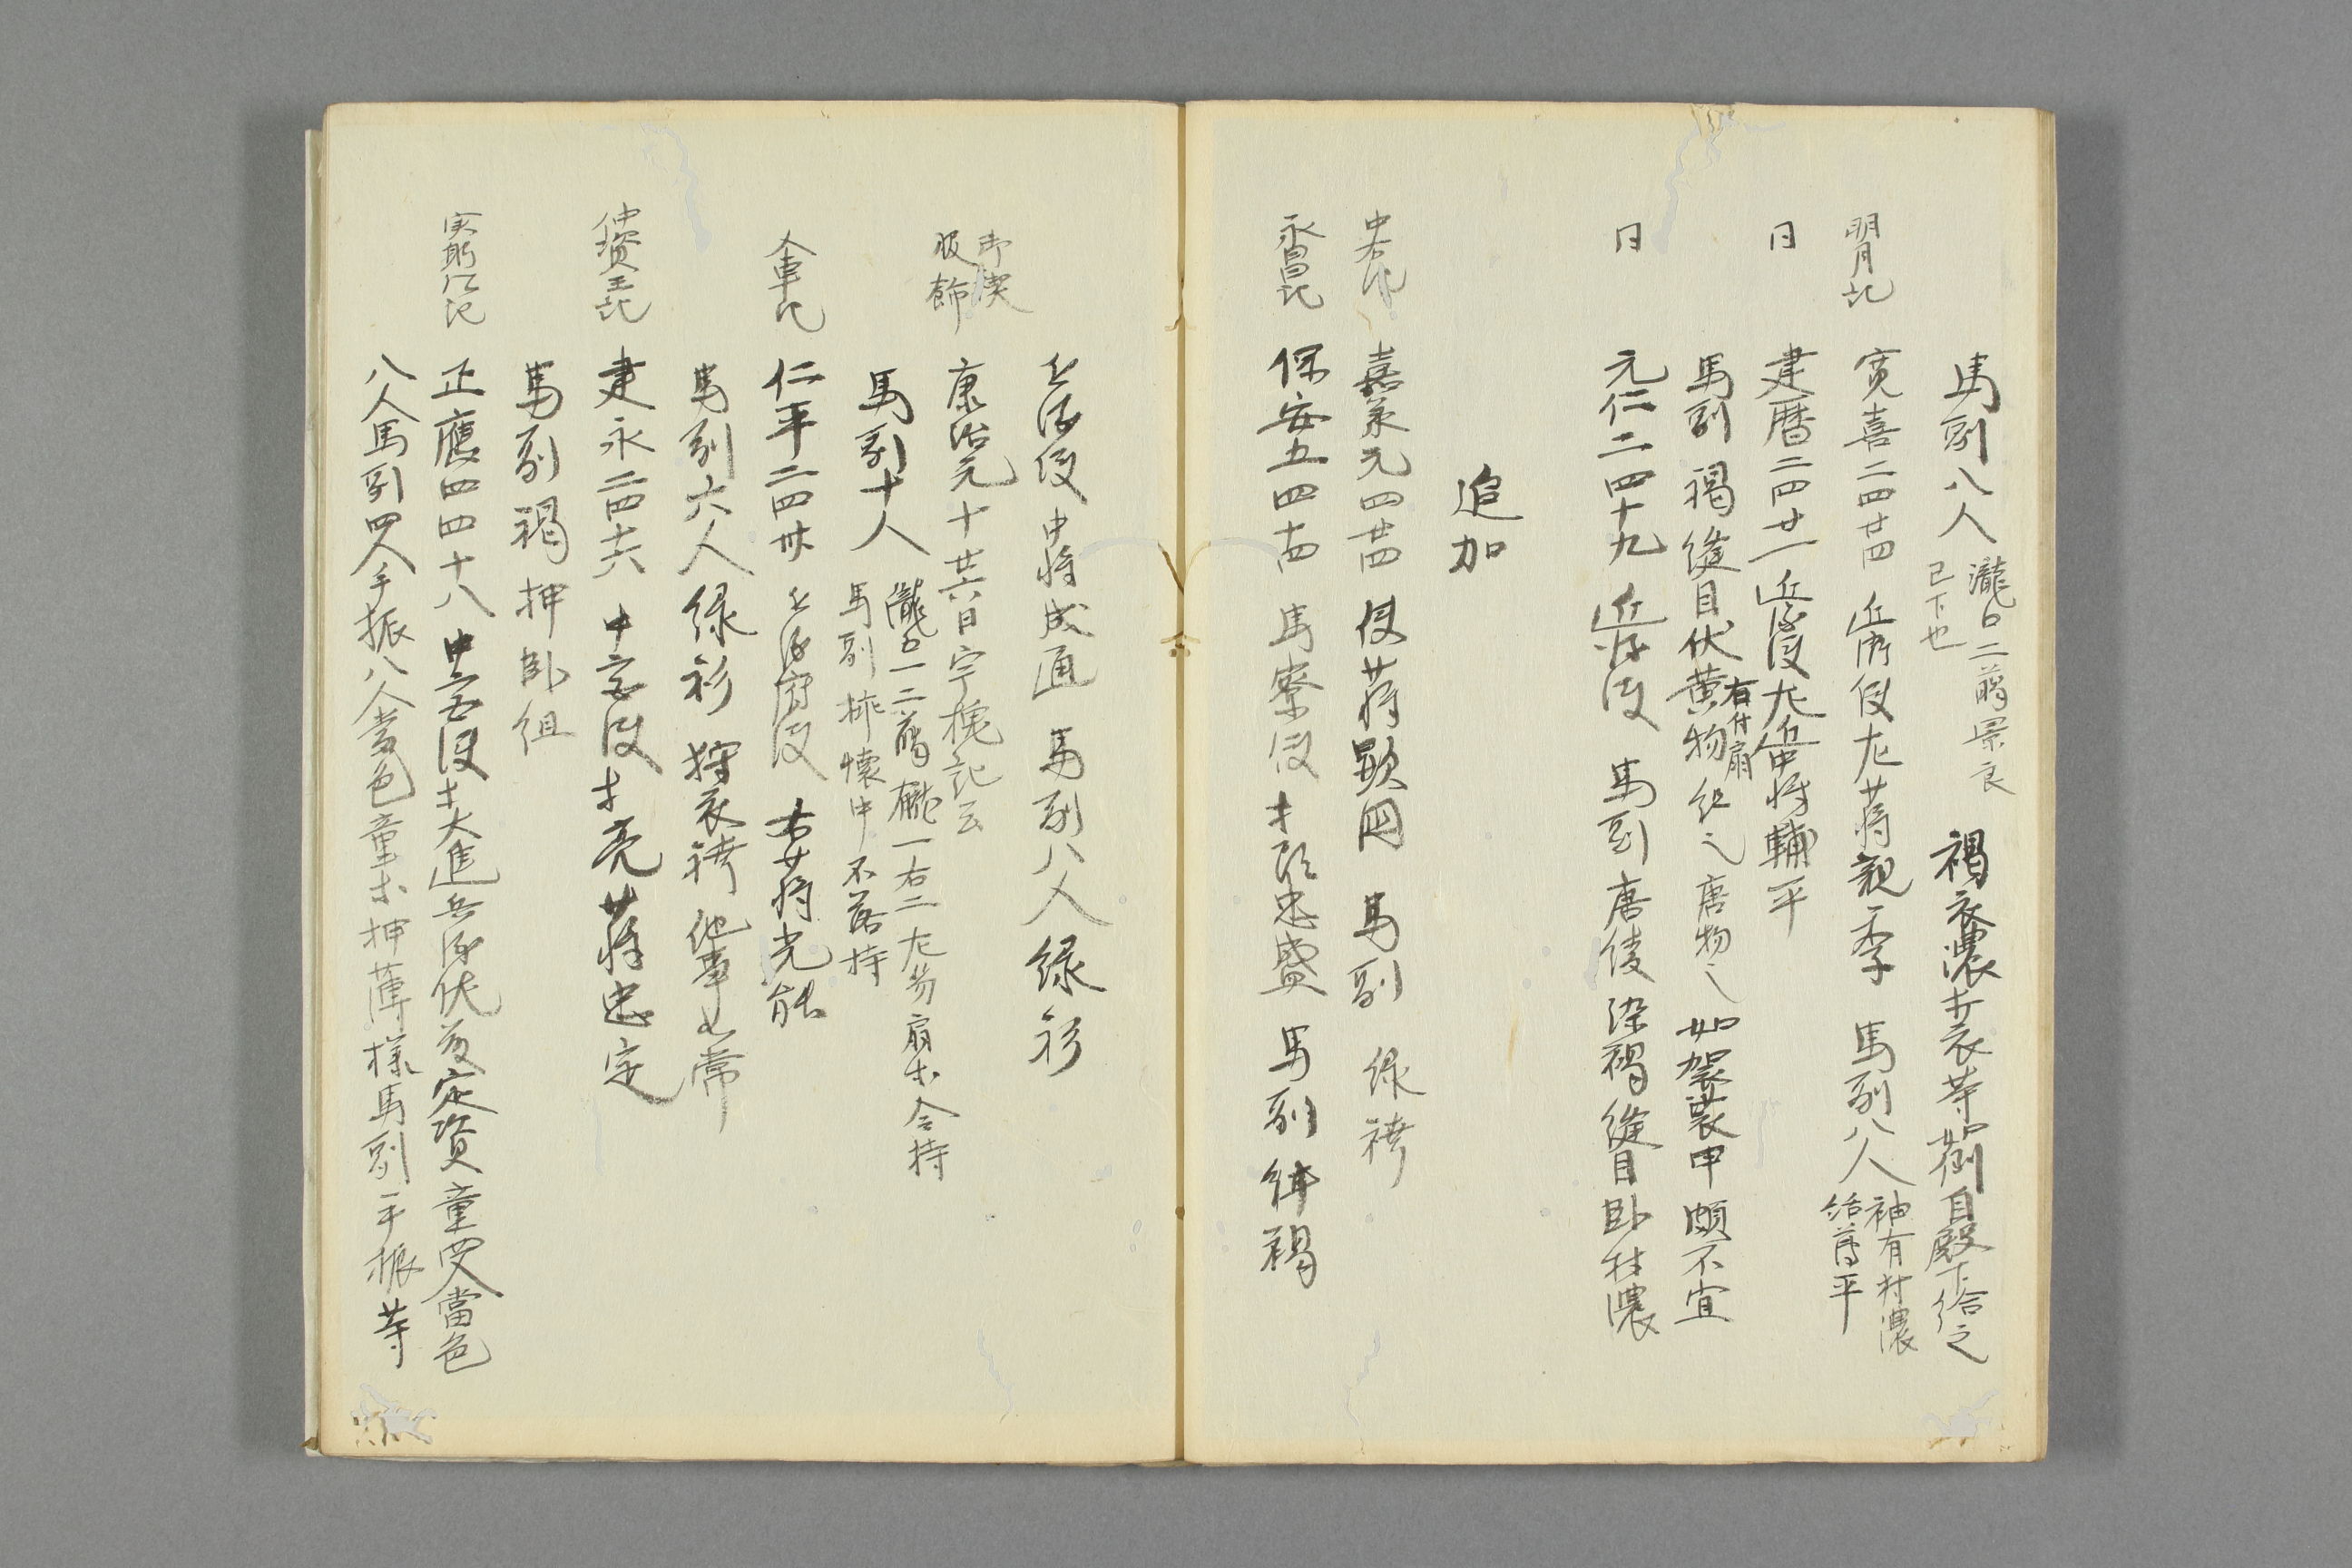 馬副八人
瀧口二﨟景良
已下也
褐衣濃打衣等如例自殿下給之
明月記
寛喜二四廿四 近衛使左少将親季 馬副八人
袖有村濃
給萠平
同
建暦二四廿一近衛使左近中将輔平
馬副褐縫目伏黄物組之唐物之如袈裟甲頗不宜
有付扇
同
元仁二四十九 近衛使 馬副唐綾染褐縫目卧村濃
追加
中右記
嘉承元四廿四 使少将顕国 馬副 緑袴
永昌記
保安五四十四 馬寮使 才頭忠盛 馬副 絓褐
近衛使 中将成通 馬副八人緑衫
御禊
服飾
康治元十廿六日宇槐記云
馬副十人
瀧口一二﨟櫳一右二左劣扇才令持
馬副挑懐中不落持
人車記
仁平二四廿 近衛府使 右少将光能
馬副六人緑衫 狩衣袴他事如常
仲資王記
建永二四十六 中宮使才亮少将忠定
馬副褐押卧組
実躬卿記
正應四四十八 中宮使才大進兵衛佐 定資童四人當色
八人馬副四人手振八人當色童才押薄様馬副手振等